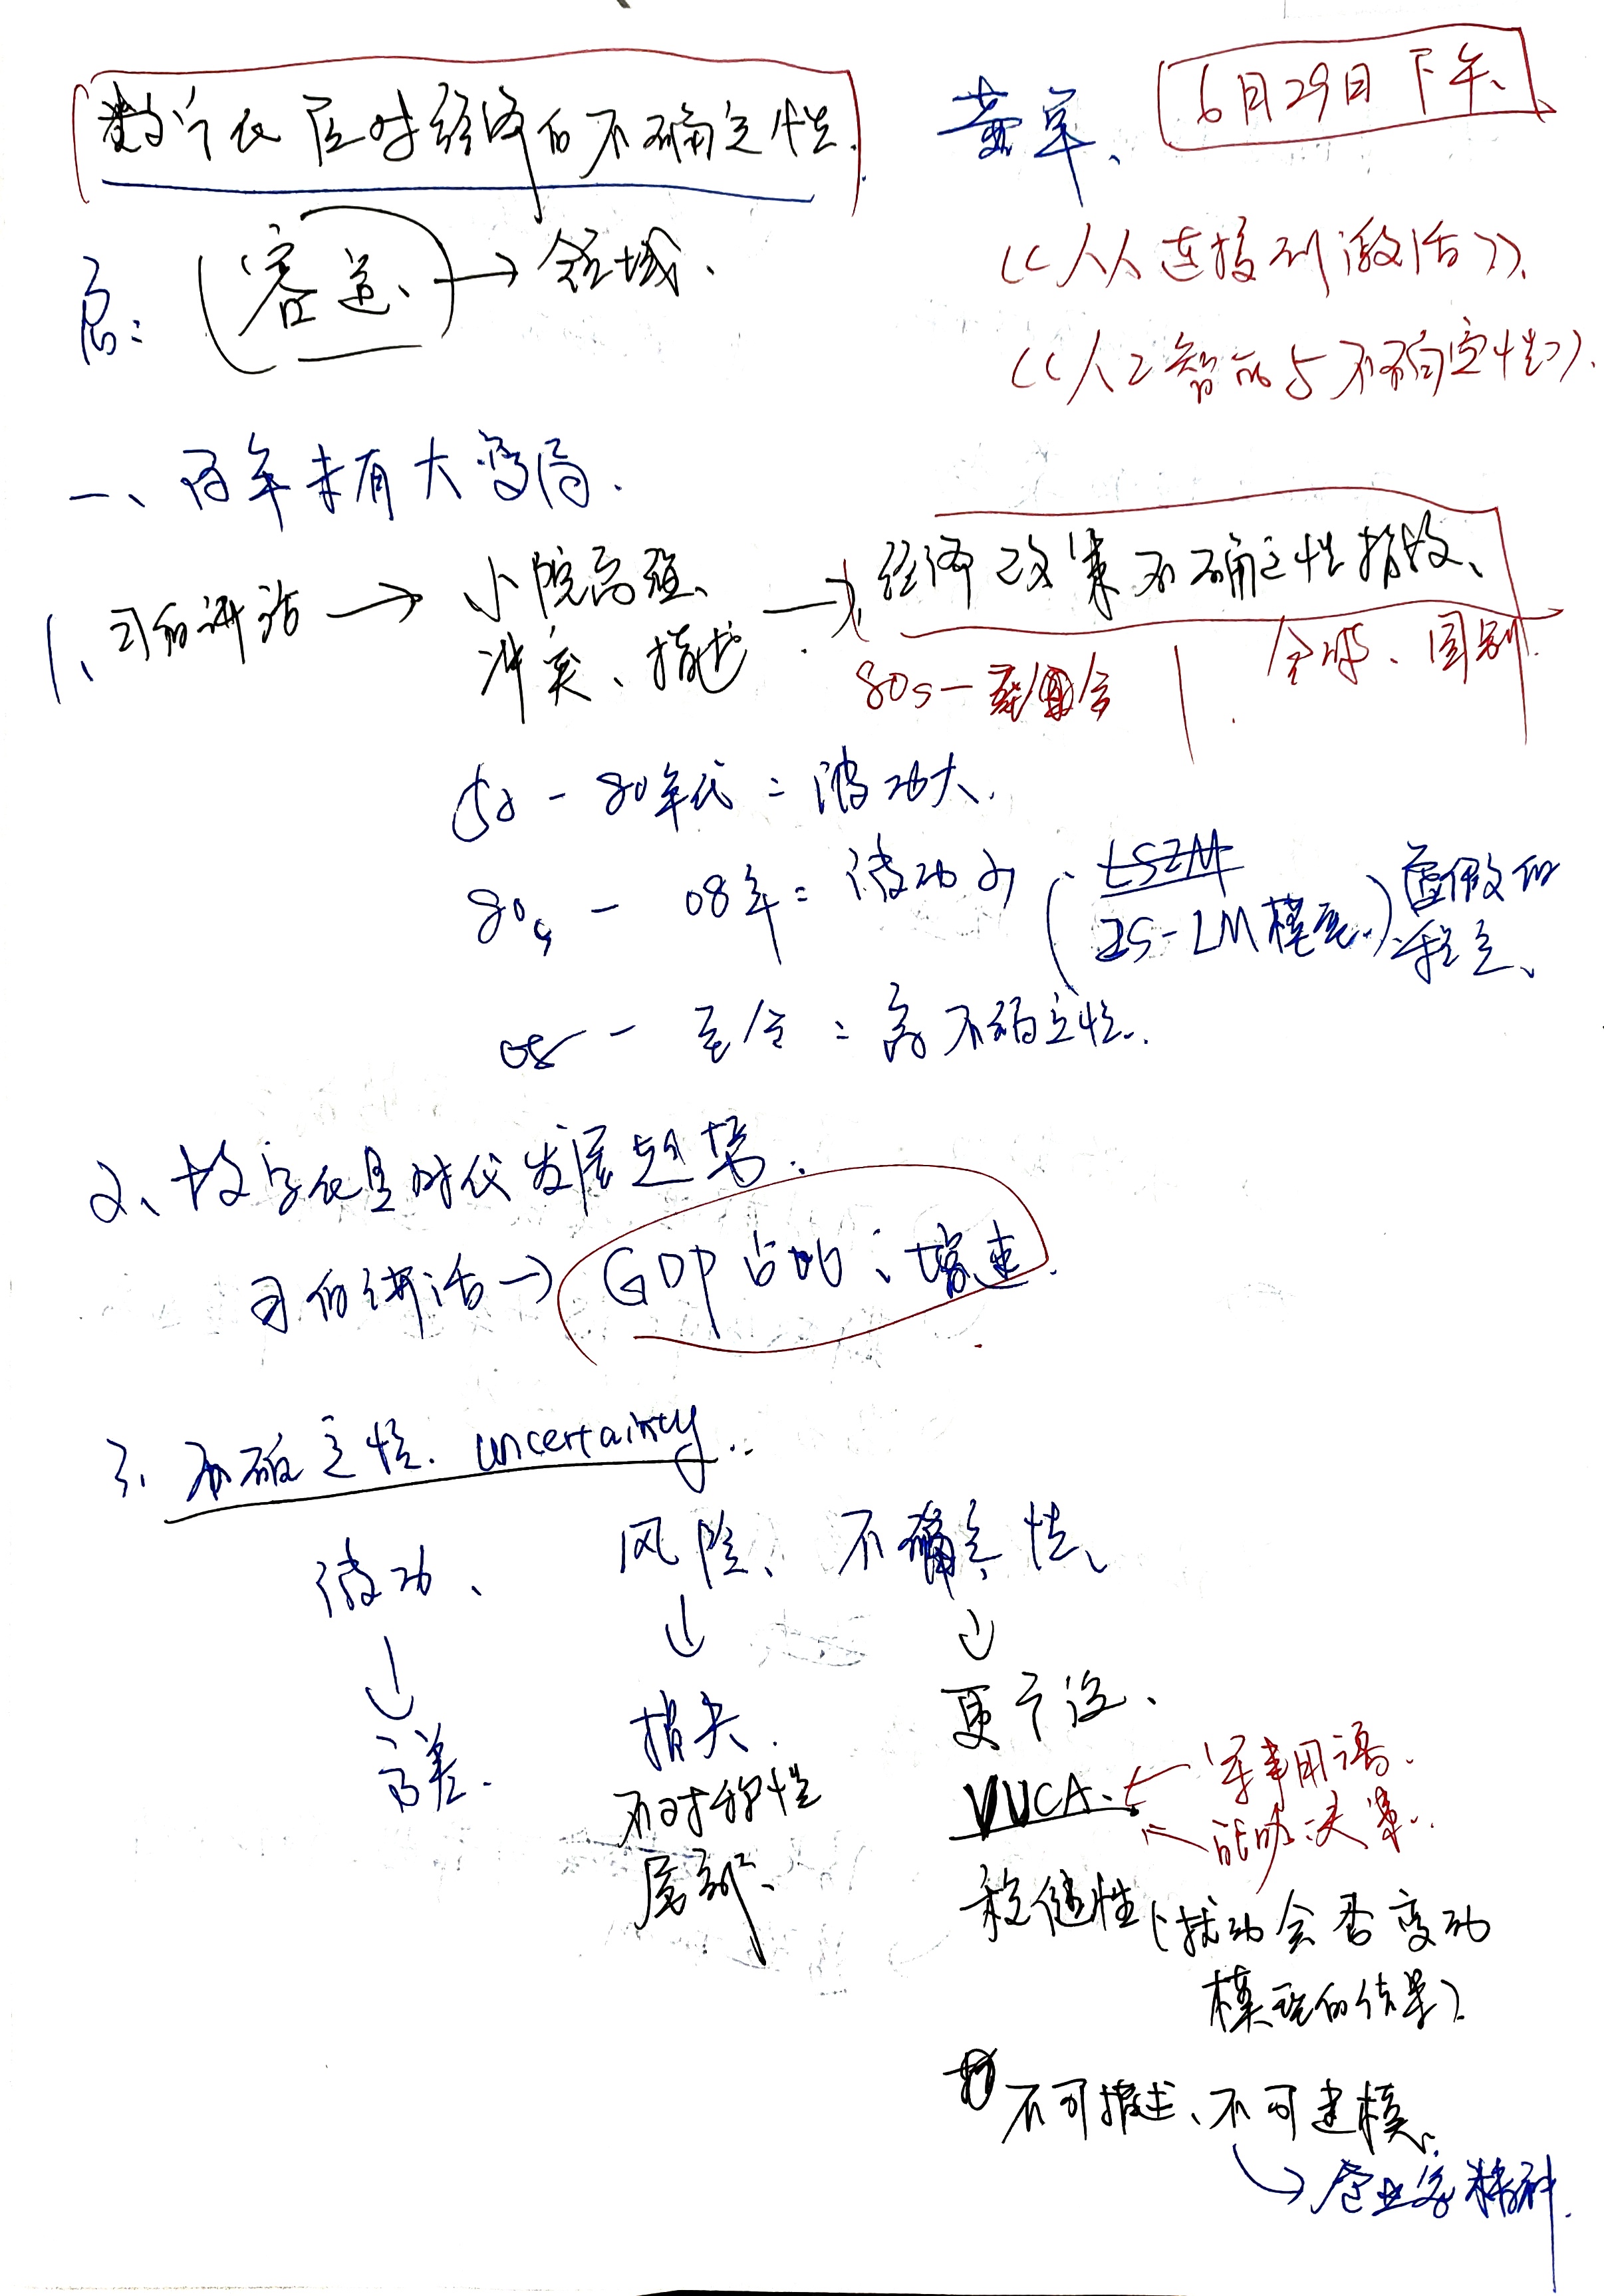 数字化应对经济的不确定性.
黄卓、 6月29日 下午、
客运、 → 领域、
《从连接到激活》、
《人工智能与不确定性》.
一、百年未有大变局.
1、习的讲话 → 小院高强、
冲突、拥护 → 经济政策不确定性指数、
80s—芝加哥 全球、国别.
50 - 80年代: 波动大.
80s - 08年: 波动小 (IS-LM模型.) 虚假的稳定、
08 - 至今: 高不确定性.
2、数字化是时代发展趋势:
习的讲话 → GDP占比; 增速.
3、不确定性. uncertainty..
波动、 风险、 不确定性、
↓ ↓ ↓
方差. 损失. 更广泛、
不对称性 VUCA. ← 军事用语.
战略决策..
尾部、 稳健性 (扰动会否变动
模型的结果)
不可描述、不可建模、
→ 企业家精神.